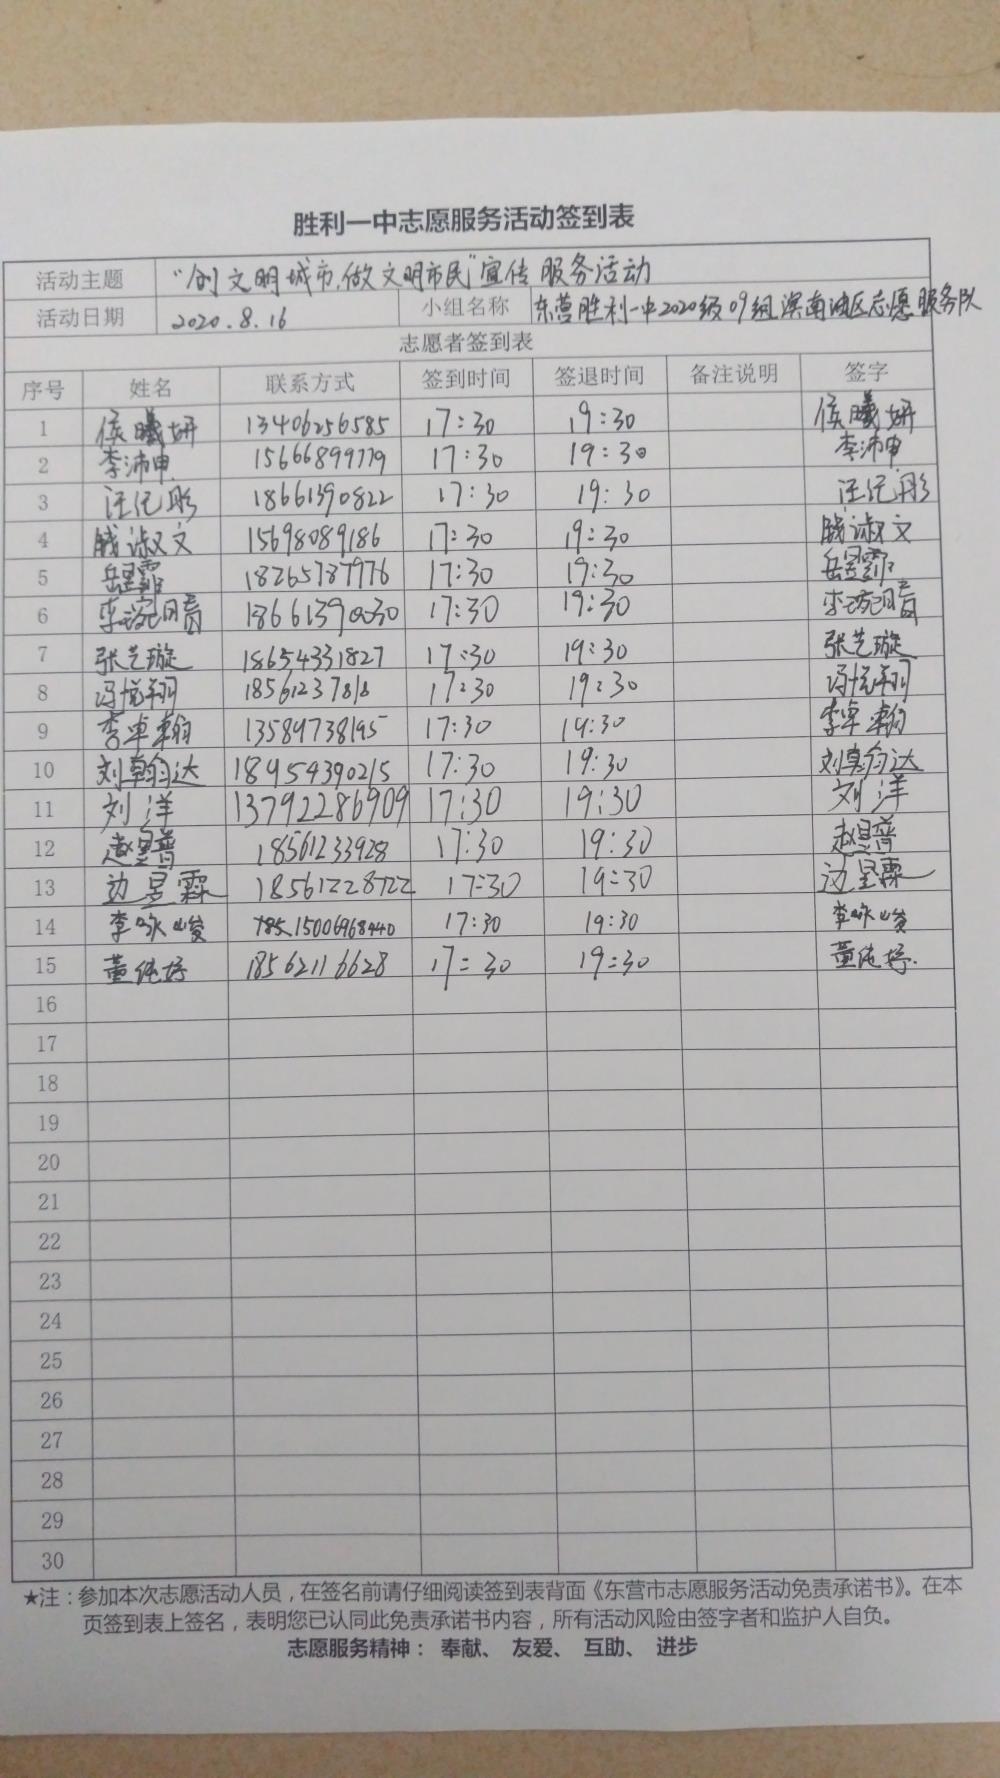 胜利一中志愿服务活动签到表
活动主题 "创文明城市,做文明市民"宣传服务活动
活动日期 2020.8.16 小组名称 东营胜利一中2020级09组滨南社区志愿服务队
志愿者签到表
序号 姓名 联系方式 签到时间 签退时间 备注说明 签字
1 侯曦妍 13406256585 17:30 19:30 侯曦妍
2 李沛申 15666899779 17:30 19:30 李沛申
3 汪纪彤 18661390822 17:30 19:30 汪纪彤
4 钱淑文 15698089186 17:30 19:30 钱淑文
5 岳昱霏 18265787976 17:30 19:30 岳昱霏
6 李琬晴 18661390030 17:30 19:30 李琬晴
7 张艺璇 18654331827 17:30 19:30 张艺璇
8 冯悦翔 18561237818 17:30 19:30 冯悦翔
9 李卓翰 13589738195 17:30 19:30 李卓翰
10 刘韩钧达 18954390215 17:30 19:30
11 刘洋 13792286909 17:30 19:30 刘洋
12 赵昱普 18561233928 17:30 19:30 赵昱普
13 边昱霖 18561228722 17:30 19:30 边昱霖
14 李咏峻 15006968440 17:30 19:30 李咏峻
15 董 18562116628 17:30 19:30 董
16
17
18
19
20
21
22
23
24
25
26
27
28
29
30
★注：参加本次志愿活动人员，在签名前请仔细阅读签到表背面《东营市志愿服务活动免责承诺书》。在本
页签到表上签名，表明您已认同此免责承诺书内容，所有活动风险由签字者和监护人自负。
志愿服务精神： 奉献、 友爱、 互助、 进步